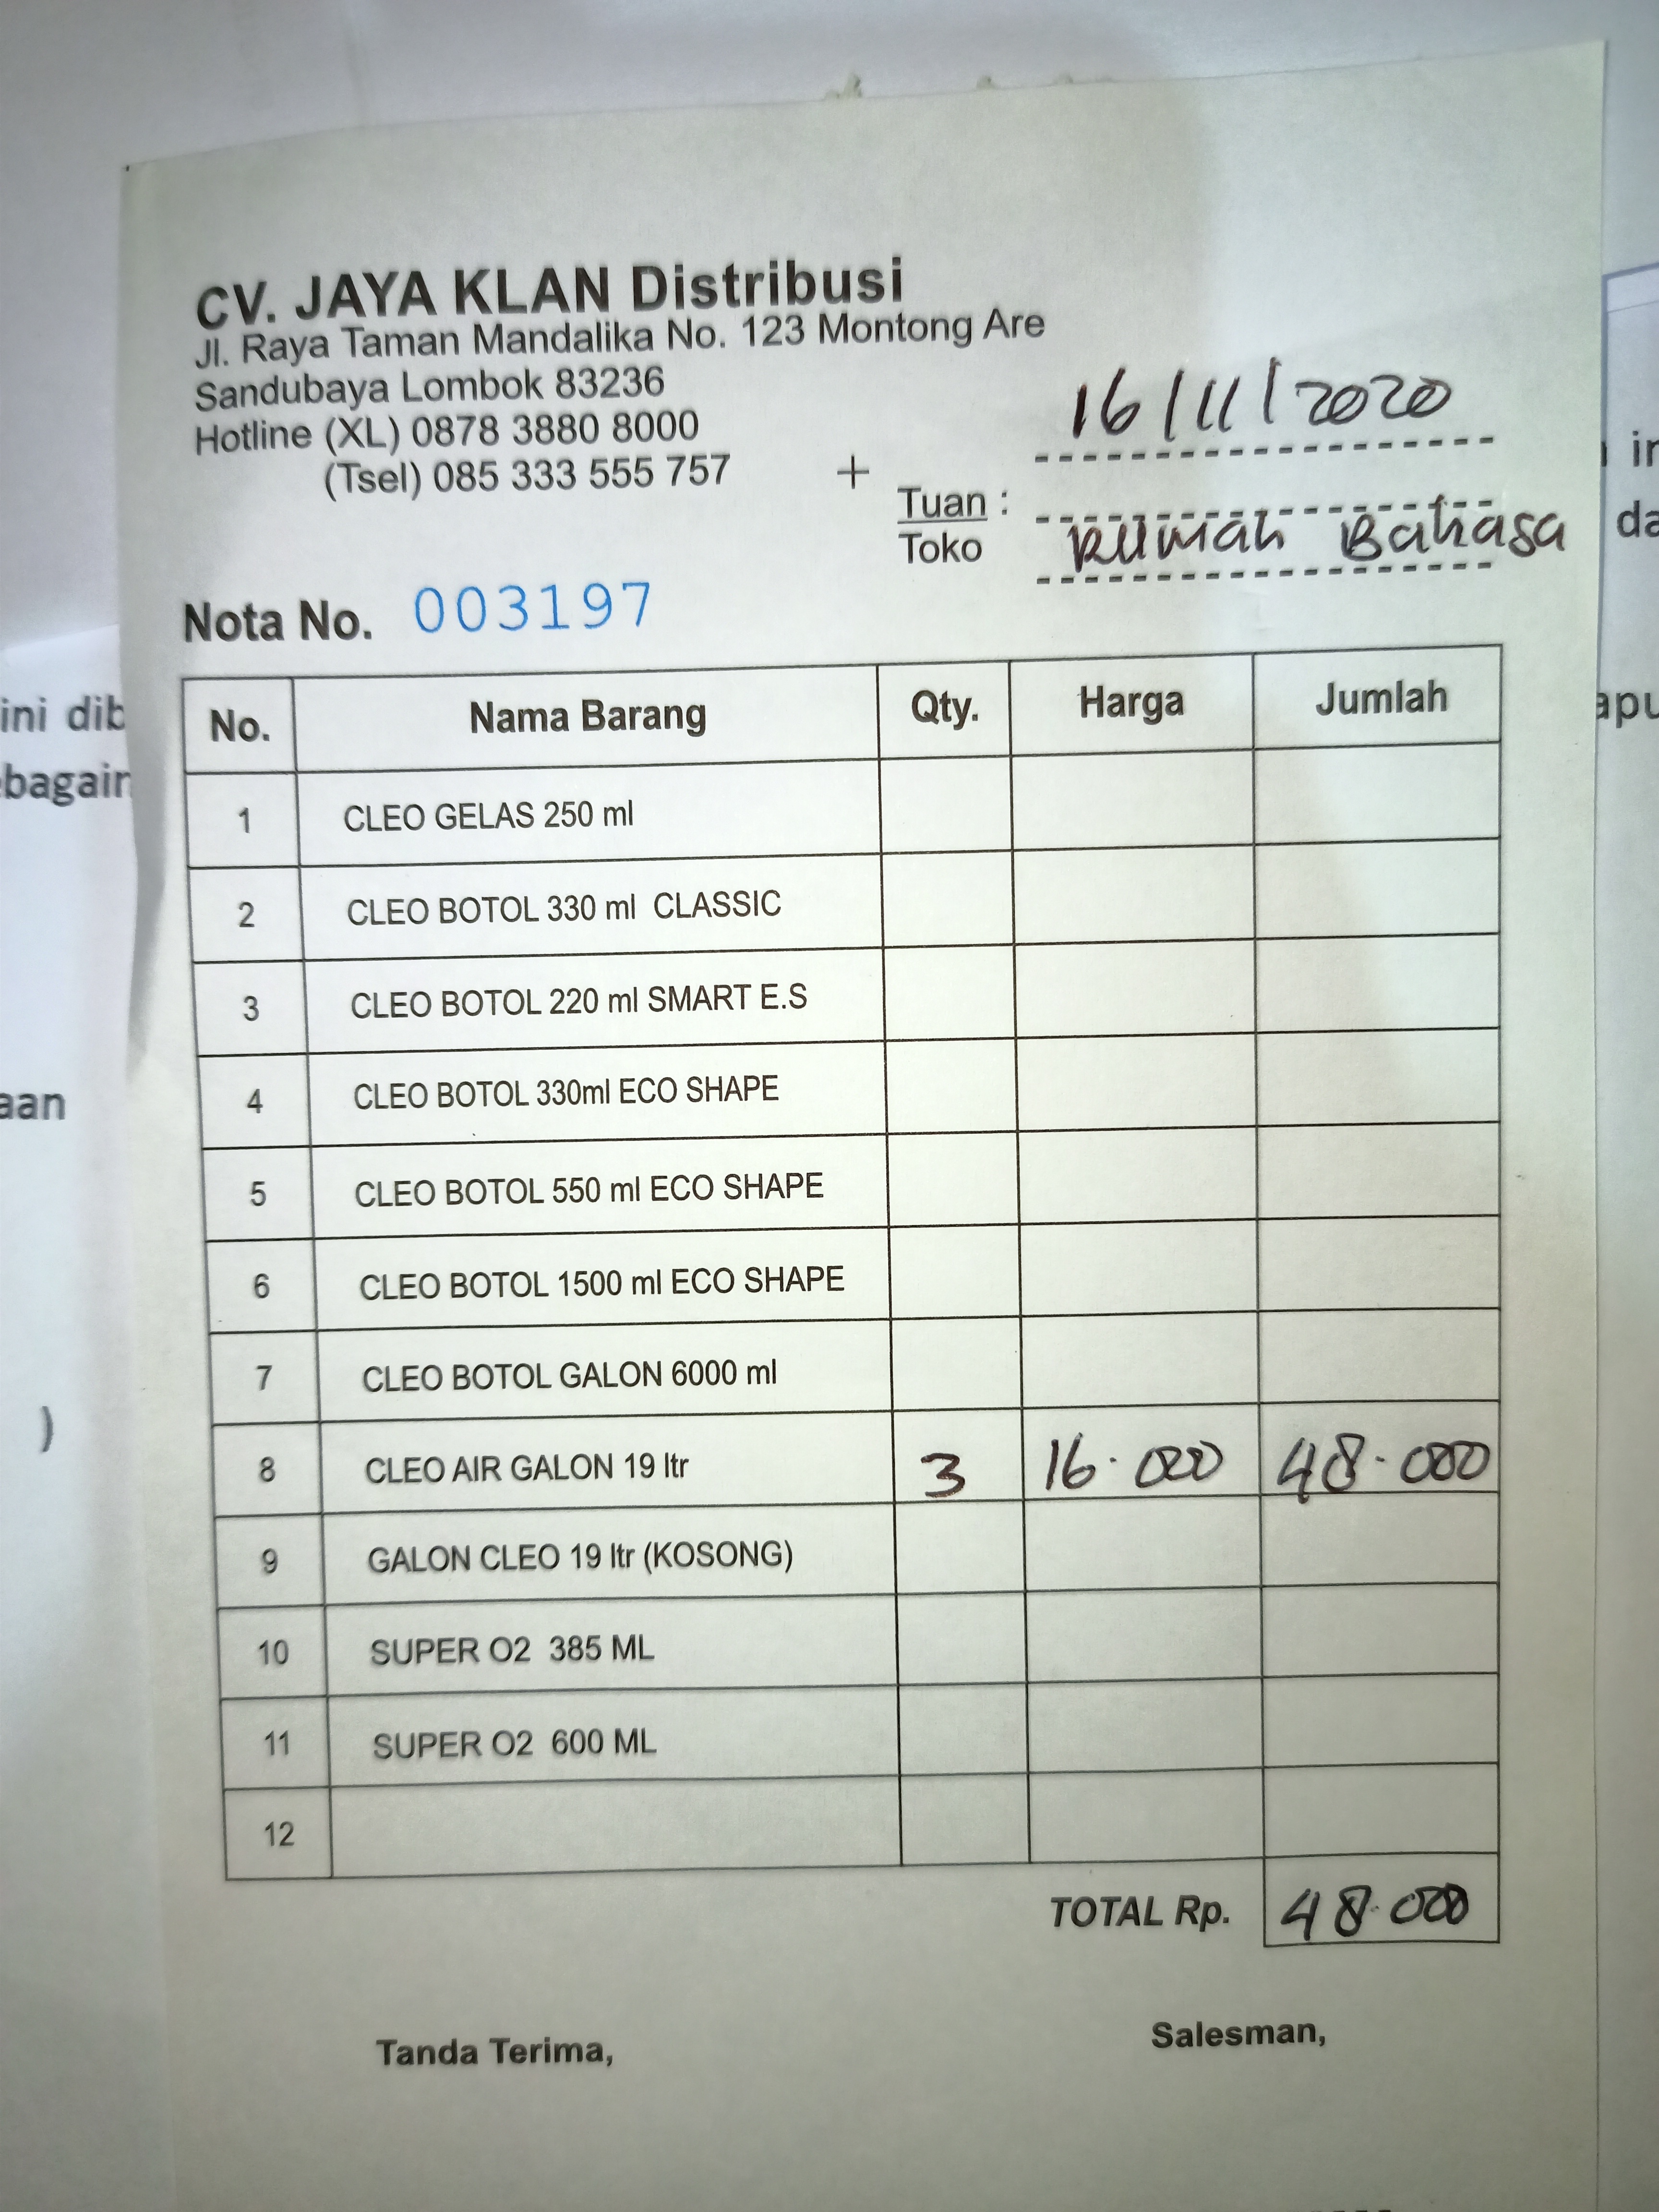 CV. JAYA KLAN Distribusi
Jl. Raya Taman Mandalika No. 123 Montong Are
Sandubaya Lombok 83236
Hotline (XL) 0878 3880 8000
(Tsel) 085 333 555 757 +
16/11/2020
Tuan :
Toko Rumah Bahasa
Nota No. 003197
No. Nama Barang Qty. Harga Jumlah
1 CLEO GELAS 250 ml
2 CLEO BOTOL 330 ml CLASSIC
3 CLEO BOTOL 220 ml SMART E.S
4 CLEO BOTOL 330ml ECO SHAPE
5 CLEO BOTOL 550 ml ECO SHAPE
6 CLEO BOTOL 1500 ml ECO SHAPE
7 CLEO BOTOL GALON 6000 ml
8 CLEO AIR GALON 19 ltr 3 16.000 48.000
9 GALON CLEO 19 ltr (KOSONG)
10 SUPER O2 385 ML
11 SUPER O2 600 ML
12
TOTAL Rp. 48.000
Tanda Terima, Salesman,